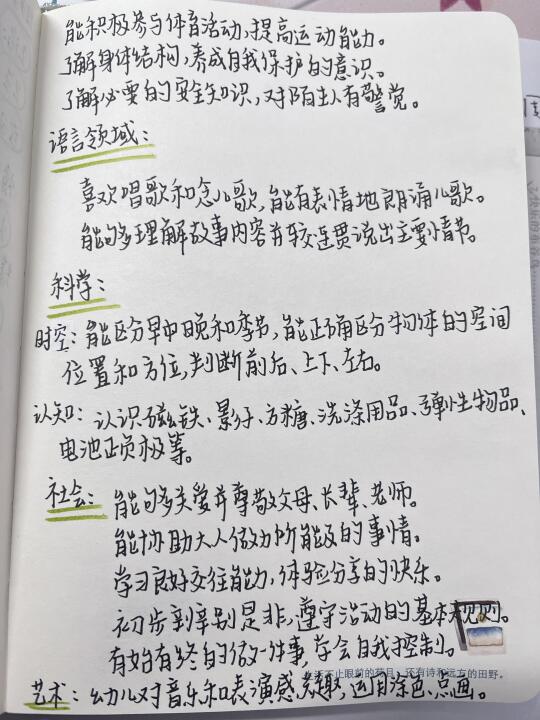 能积极参与体育活动,提高运动能力。
了解身体结构,养成自我保护的意识。
了解必要的安全知识,对陌生人有警觉。
语言领域:
喜欢唱歌和念儿歌,能有表情地朗诵儿歌。
能够理解故事内容并较连贯说出主要情节。
科学:
时空:能区分早中晚和季节,能正确区分物体的空间
位置和方位,判断前后、上下、左右。
认知:认识磁铁、影子、方糖、洗涤用品、弹性物品、
电池正负极等。
社会:能够关爱并尊敬父母、长辈、老师。
能协助大人做力所能及的事情。
学习良好交往能力,体验分享的快乐。
初步到辛别是非,遵守活动的基本规则。
有始有终的做一件事,学会自我控制。
不止眼前的苟且,还有诗和远方的田野。
艺术:幼儿对音乐和表演感兴趣,运用涂色、点画。